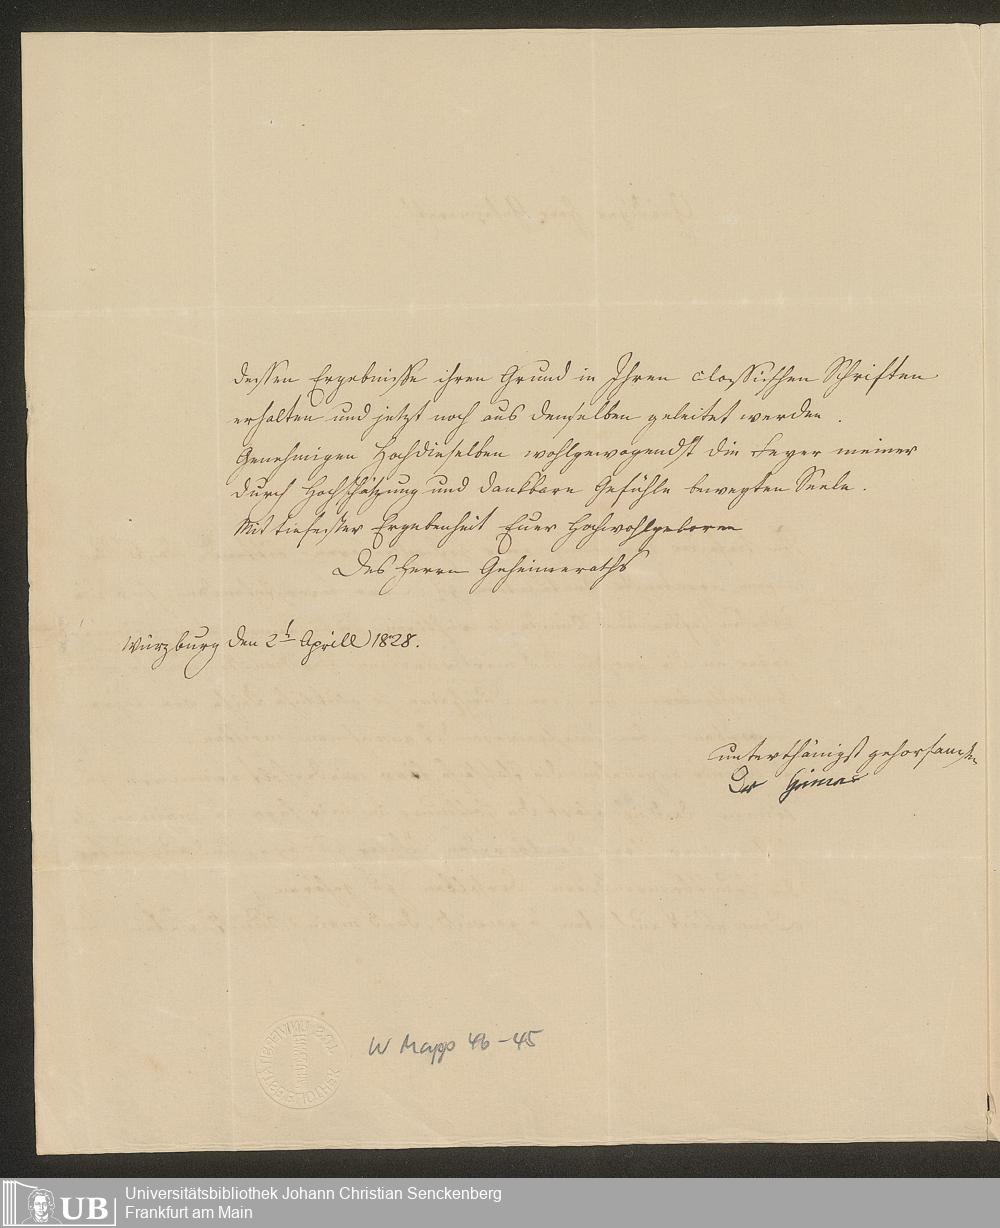 dessen Ergebniße ihren Grund in Ihren classischen Schriften
erhalten und jetzt noch aus denselben geleitet werden.
Genehmigen Hochdieselben wohlgewogendst die Feyer meiner
durch Hochschätzung und dankbare Gefühle bewegten Seele.
Mit tiefester Ergebenheit Euer Hochwohlgeboren
Des Herrn Geheimeraths
Würzburg den 2t Aprill 1828.
unterthänigst gehorsamster
Dr
W Mapp 46-45
UB
Universitätsbibliothek Johann Christian Senckenberg
Frankfurt am Main